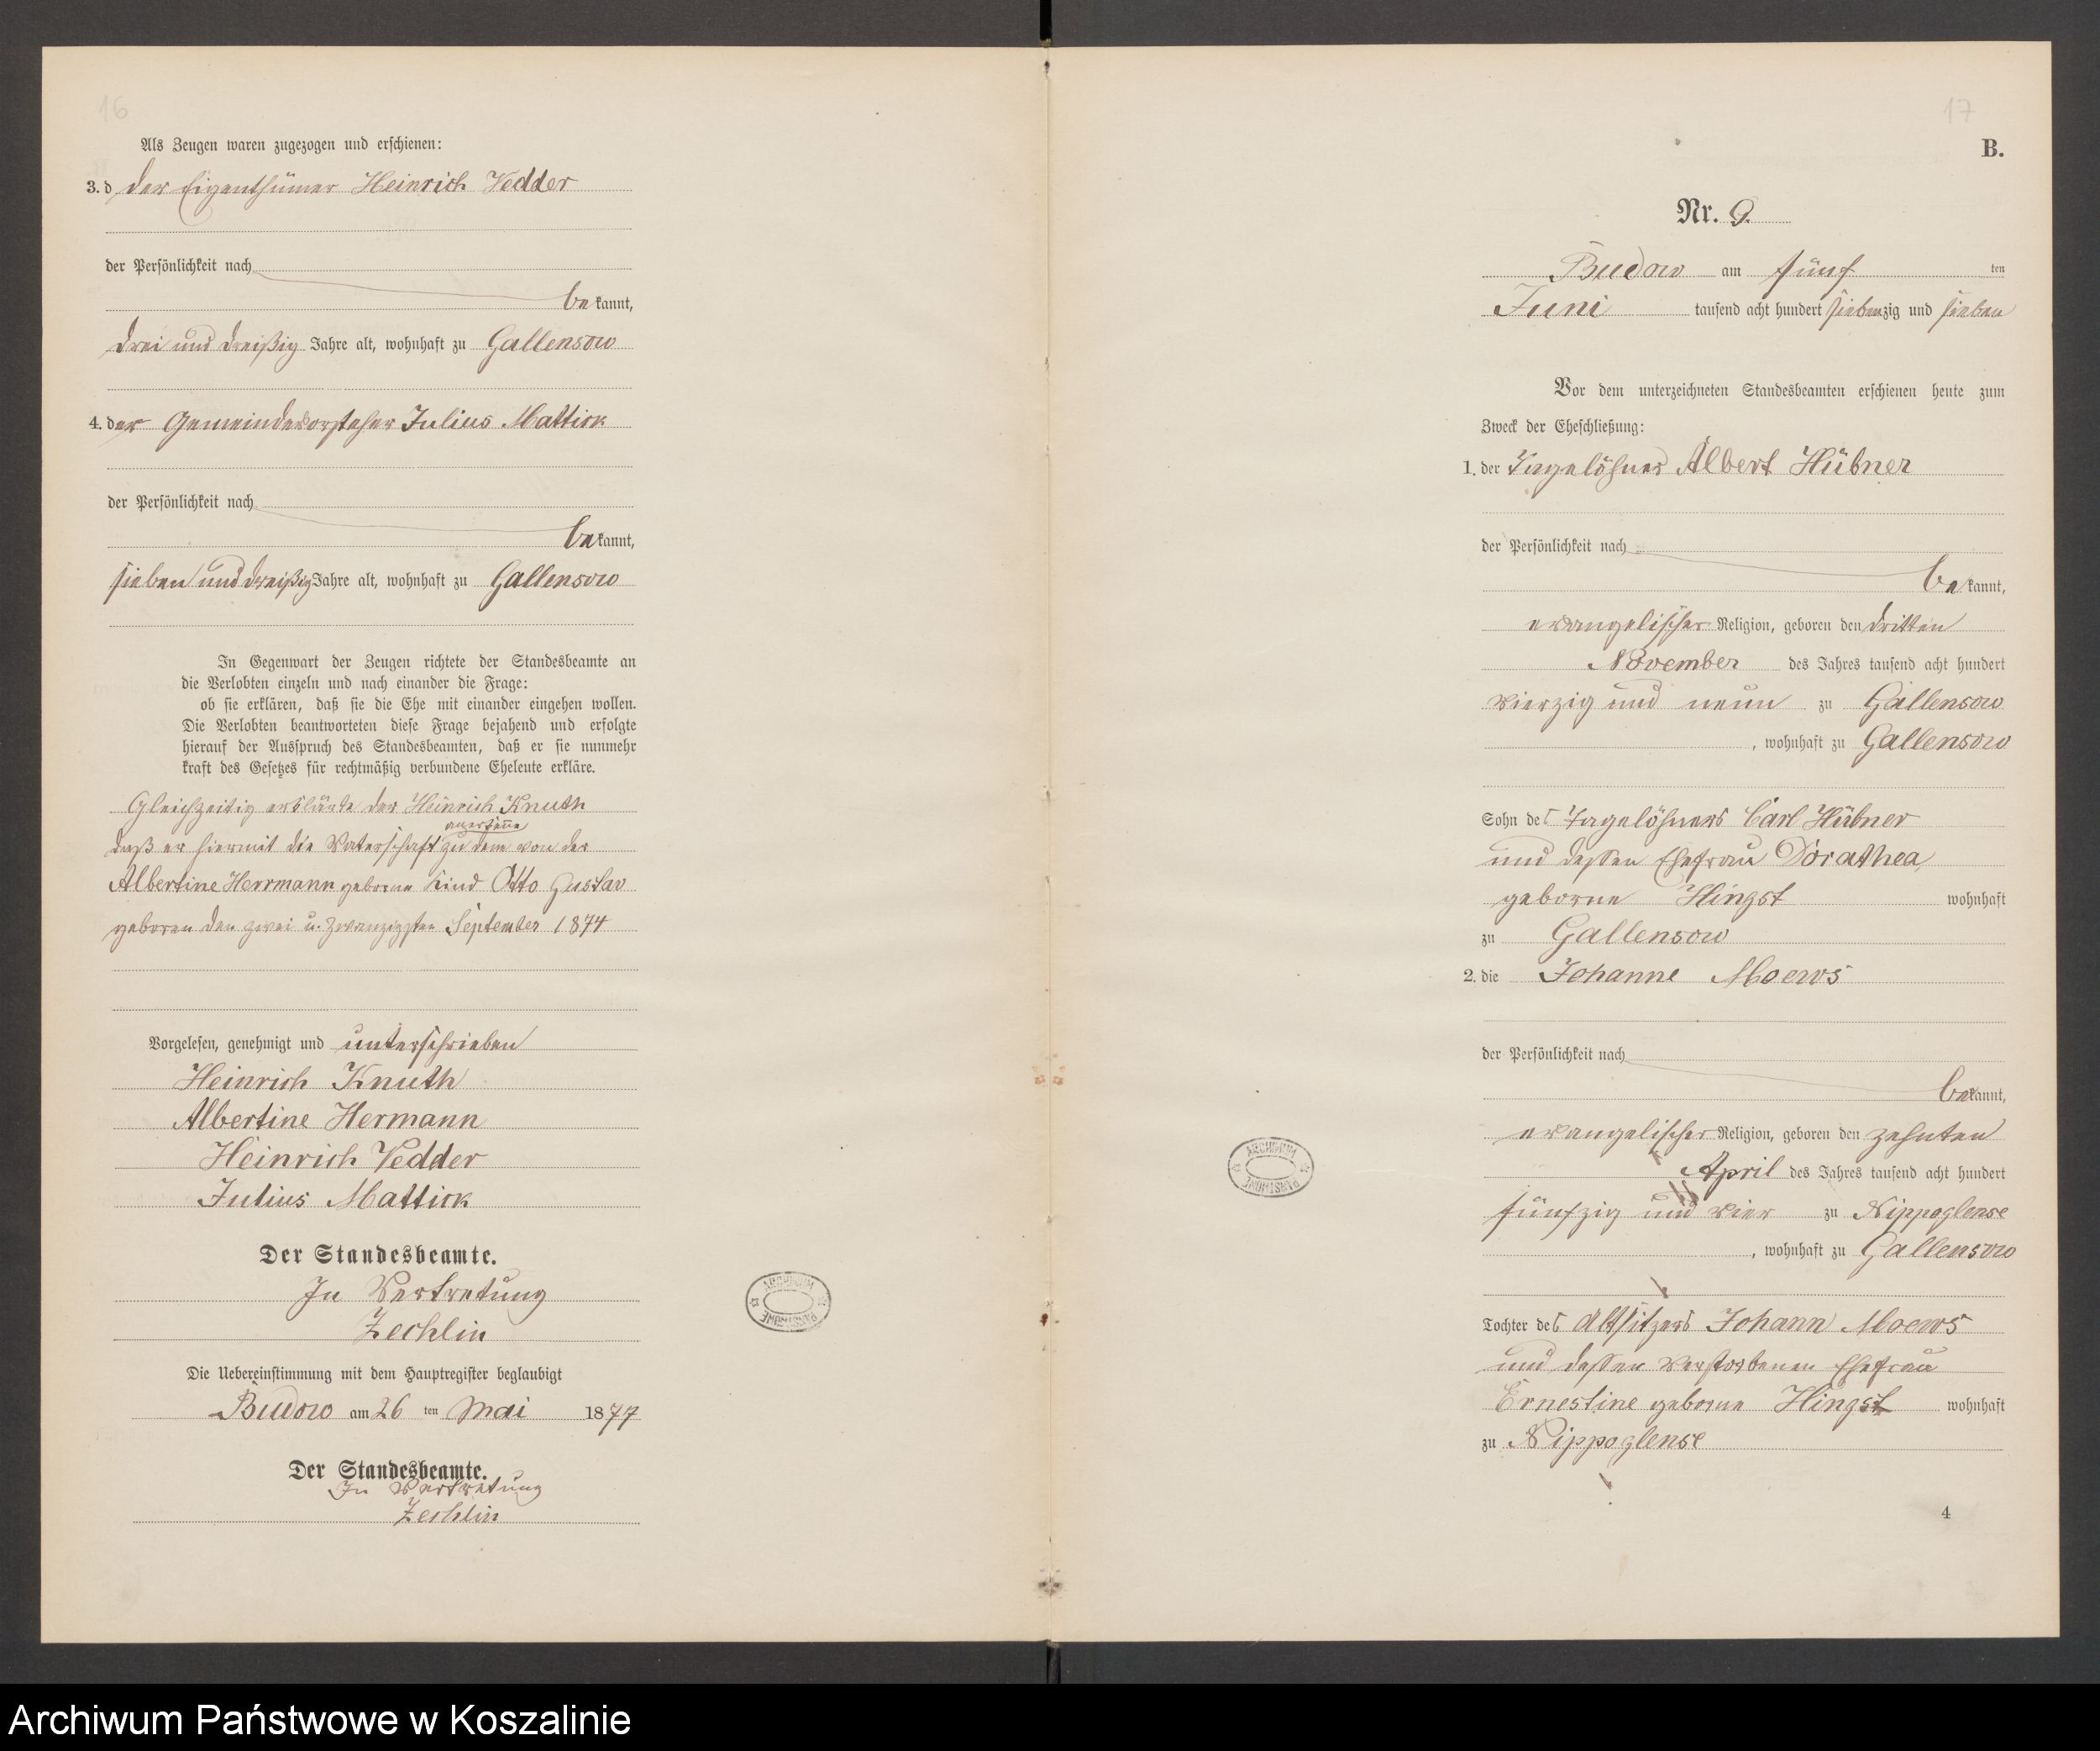 16
Als Zeugen waren zugezogen und erschienen:
3. d der Eigenthümer Heinrich Vedder
der Persönlichkeit nach
be kannt,
drei und dreißig Jahre alt, wohnhaft zu Gallensow
4. der Gemeindevorsteher Julius Mattick
der Persönlichkeit nach
be kannt,
sieben und dreißig Jahre alt, wohnhaft zu Gallensow
In Gegenwart der Zeugen richtete der Standesbeamte an
die Verlobten einzeln und nach einander die Frage:
ob sie erklären, daß sie die Ehe mit einander eingehen wollen.
Die Verlobten beantworteten diese Frage bejahend und erfolgte
hierauf der Ausspruch des Standesbeamten, daß er sie nunmehr
kraft des Gesetzes für rechtmäßig verbundene Eheleute erkläre.
Gleichzeitig erklärte der Heinrich Knuth
anerkenne
daß er hiermit die Vaterschaft zu dem von der
Albertine Herrmann geborne Kind Otto Gustav
geboren den zwei u. zwanzigsten September 1874
Vorgelesen, genehmigt und unterschrieben
Heinrich Knuth
Albertine Hermann
Heinrich Vedder
Julius Mattick
Der Standesbeamte.
In Vertretung
Zechlin
Die Uebereinstimmung mit dem Hauptregister beglaubigt
Budow am 26 ten Mai 1877
Der Standesbeamte.
In Vertretung
Zechlin
ARCHIWUM PAŃSTWOWE
17
B.
Nr. 9.
Budow am fünf ten
Juni tausend acht hundert siebenzig und sieben
Vor dem unterzeichneten Standesbeamten erschienen heute zum
Zweck der Eheschließung:
1. der Tagelöhner Albert Hübner
der Persönlichkeit nach
be kannt,
evangelischer Religion, geboren den dritten
November des Jahres tausend acht hundert
vierzig und neun zu Gallensow
, wohnhaft zu Gallensow
Sohn des Tagelöhners Carl Hübner
und dessen Ehefrau Dorathea,
geborne Hingst wohnhaft
zu Gallensow
2. die Johanne Moews
der Persönlichkeit nach
be kannt,
evangelischer Religion, geboren den zehnten
April des Jahres tausend acht hundert
fünfzig und vier zu Nippoglense
, wohnhaft zu Gallensow
Tochter des Altsitzers Johann Moews
und dessen verstorbenen Ehefrau
Ernestine geborne Hingst wohnhaft
zu Nippoglense
4
ARCHIWUM PAŃSTWOWE
Archiwum Państwowe w Koszalinie